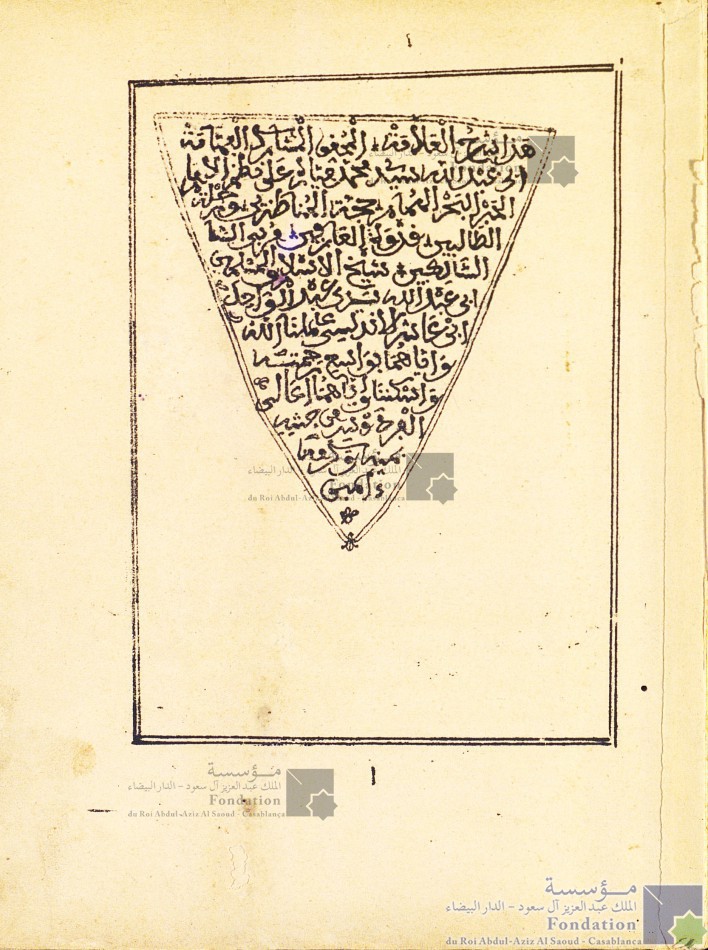 هذا شرح العلامة المحقق المشارك الفهامة
ابي عبد الله سيد محمد ميارة على نظم الامام
الحبر البحر الهمام حجة المناظرين وحجة
الطالبين قدوة العارفين ومربي
السالكين شيخ الاسلام
ابي عبد الله سيدي عبد الواحد
ابن عاشر الاندلسي عاملنا الله
واياهما بواسع رحمته
واسكننا واياهما اعالي
الفردوس من جنته
بمنه وكرمه
ءامين
مؤسسة
الملك عبد العزيز آل سعود - الدار البيضاء
Fondation
du Roi Abdul-Aziz Al Saoud - Casablanca
مؤسسة
الملك عبد العزيز آل سعود - الدار البيضاء
Fondation
du Roi Abdul-Aziz Al Saoud - Casablanca